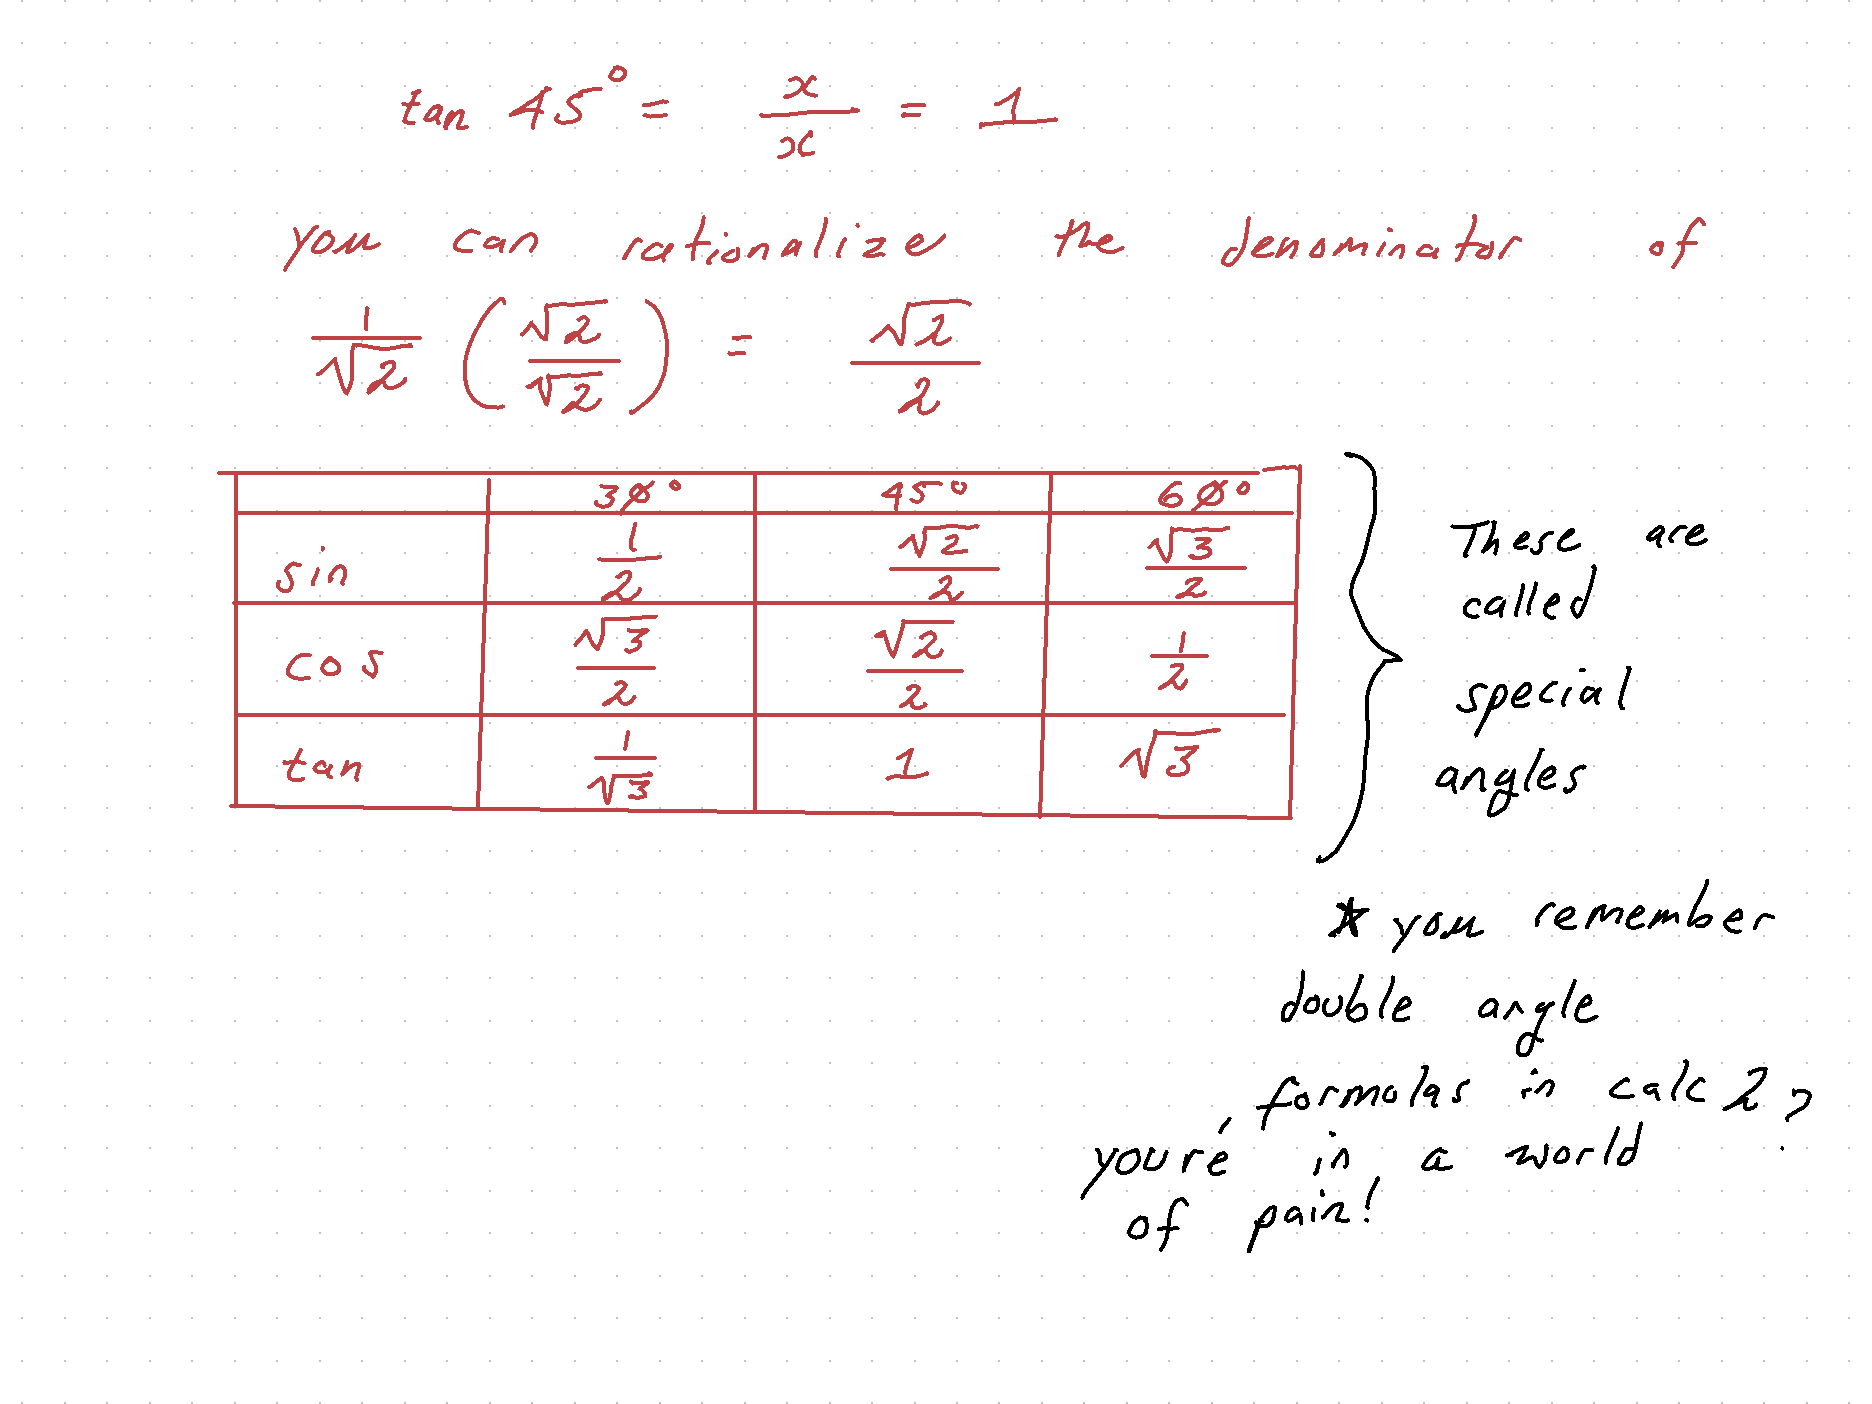 tan 45° = x/x = 1
you can rationalize the denominator of
1/√2 (√2/√2) = √2/2
30° 45° 60°
sin 1/2 √2/2 √3/2
cos √3/2 √2/2 1/2
tan 1/√3 1 √3
These are
called
special
angles
* you remember
double angle
formolas in calc 2?
you're in a world
of pain!